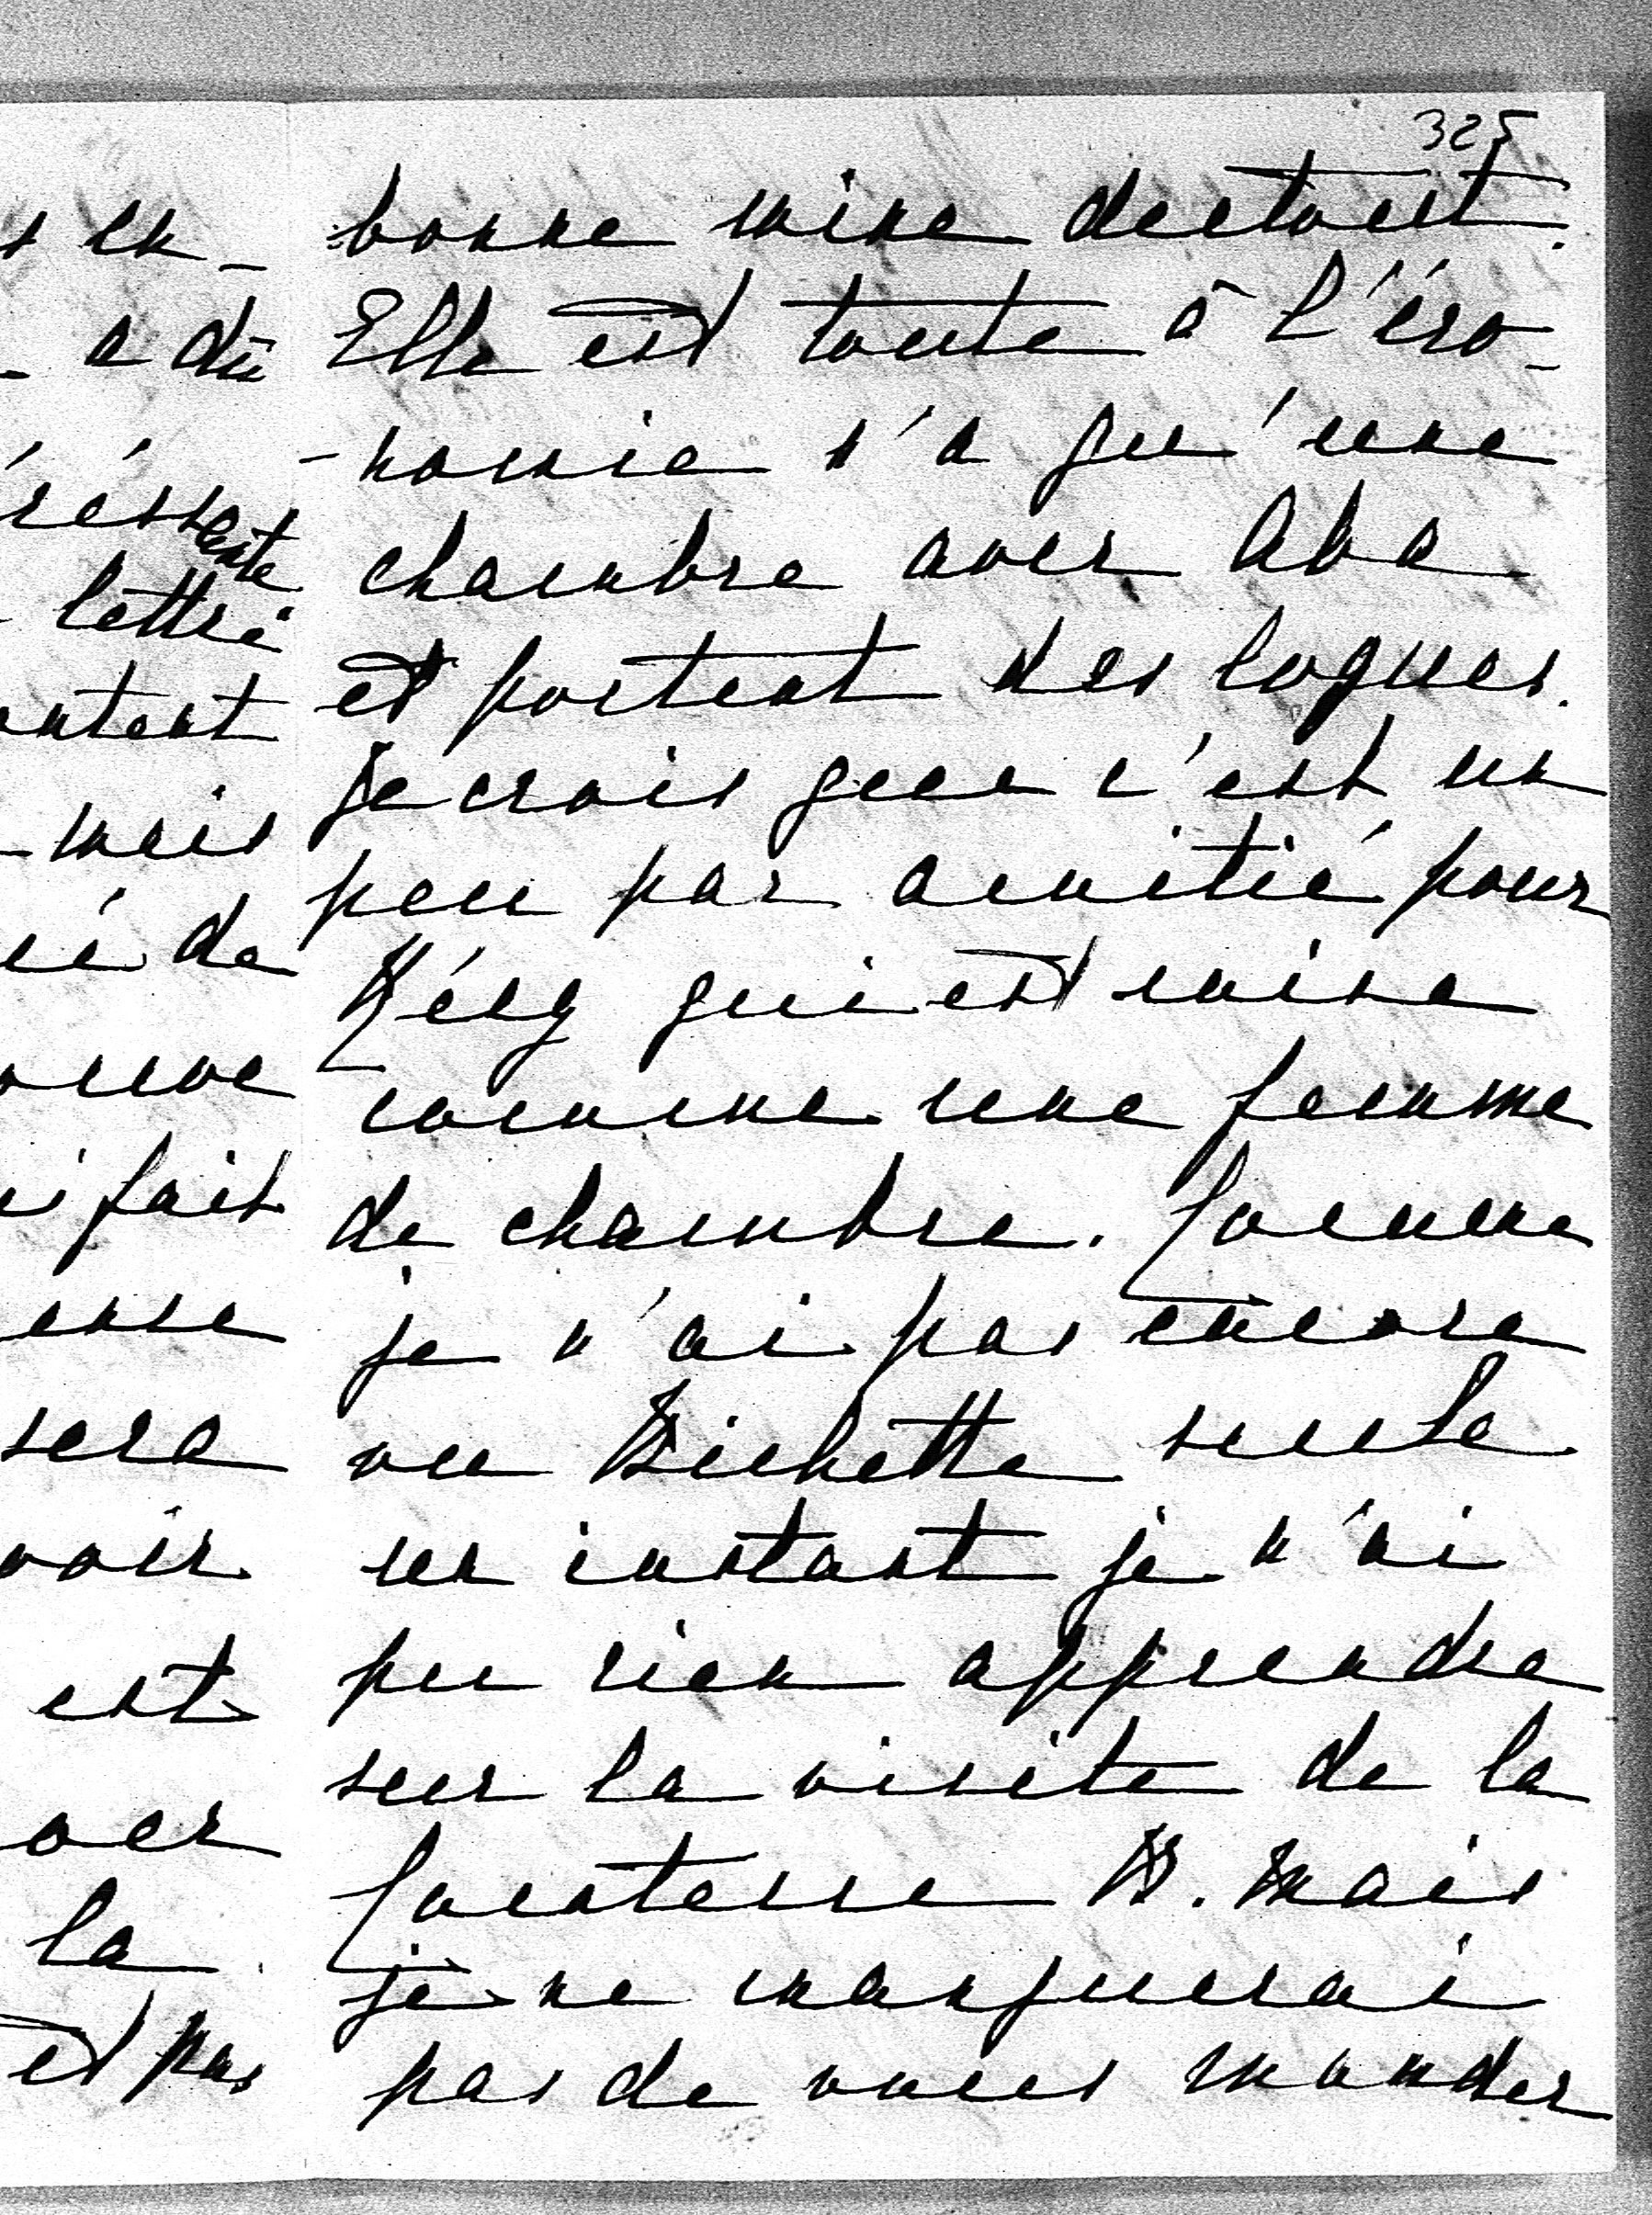 325
s en-
a dû
réss
ente
lettre
ontent
mais
é de
ouve
i fait
ense
sera
voir
est
la
et pas
bonne mine du tout.
Elle est toute à l'éco-
-nomie n'a qu'une
chambre avec Aba
et portent des loques.
Je crois que c'est un
peu par amitié pour
qui est mise
comme une femme
de chambre. Comme
je n'ai pas encore
vu Bichette seule
un instant je n'ai
pu rien apprendre
sur la visite de la
Comtesse B. Mais
je ne manquerai
pas de vous mander